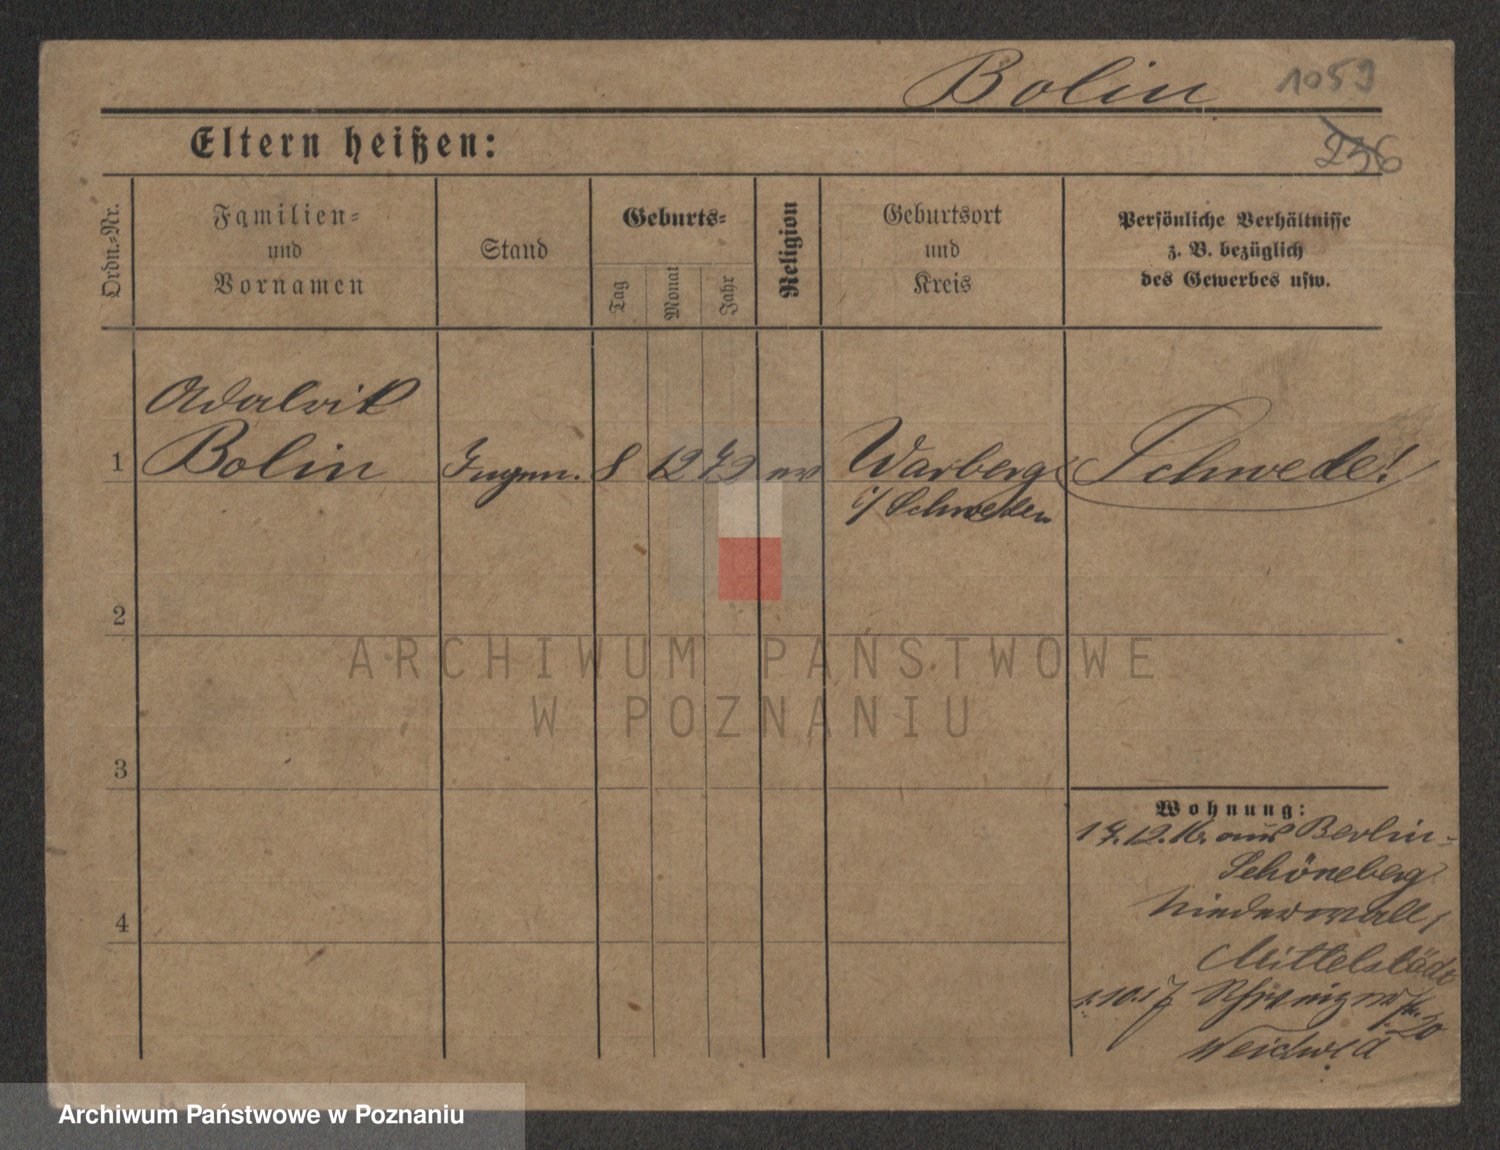 Bolin 1059
236
Eltern heißen:
Ordn.-Nr.
Familien-
und
Vornamen
Stand
Geburts-
Tag
Monat
Jahr
Religion
Geburtsort
und
Kreis
Persönliche Verhältnisse
z. B. bezüglich
des Gewerbes usw.
Adalrik
1 Bolin Ingen. 8 12 72 ev Warberg Schwede!
i/ Schweden
2
ARCHIWUM PAŃSTWOWE
W POZNANIU
3
Wohnung:
17.12.16. aus Berlin-
Schöneberg
Niederwall
Mittelstädt
1.10.17
20
4
Archiwum Państwowe w Poznaniu